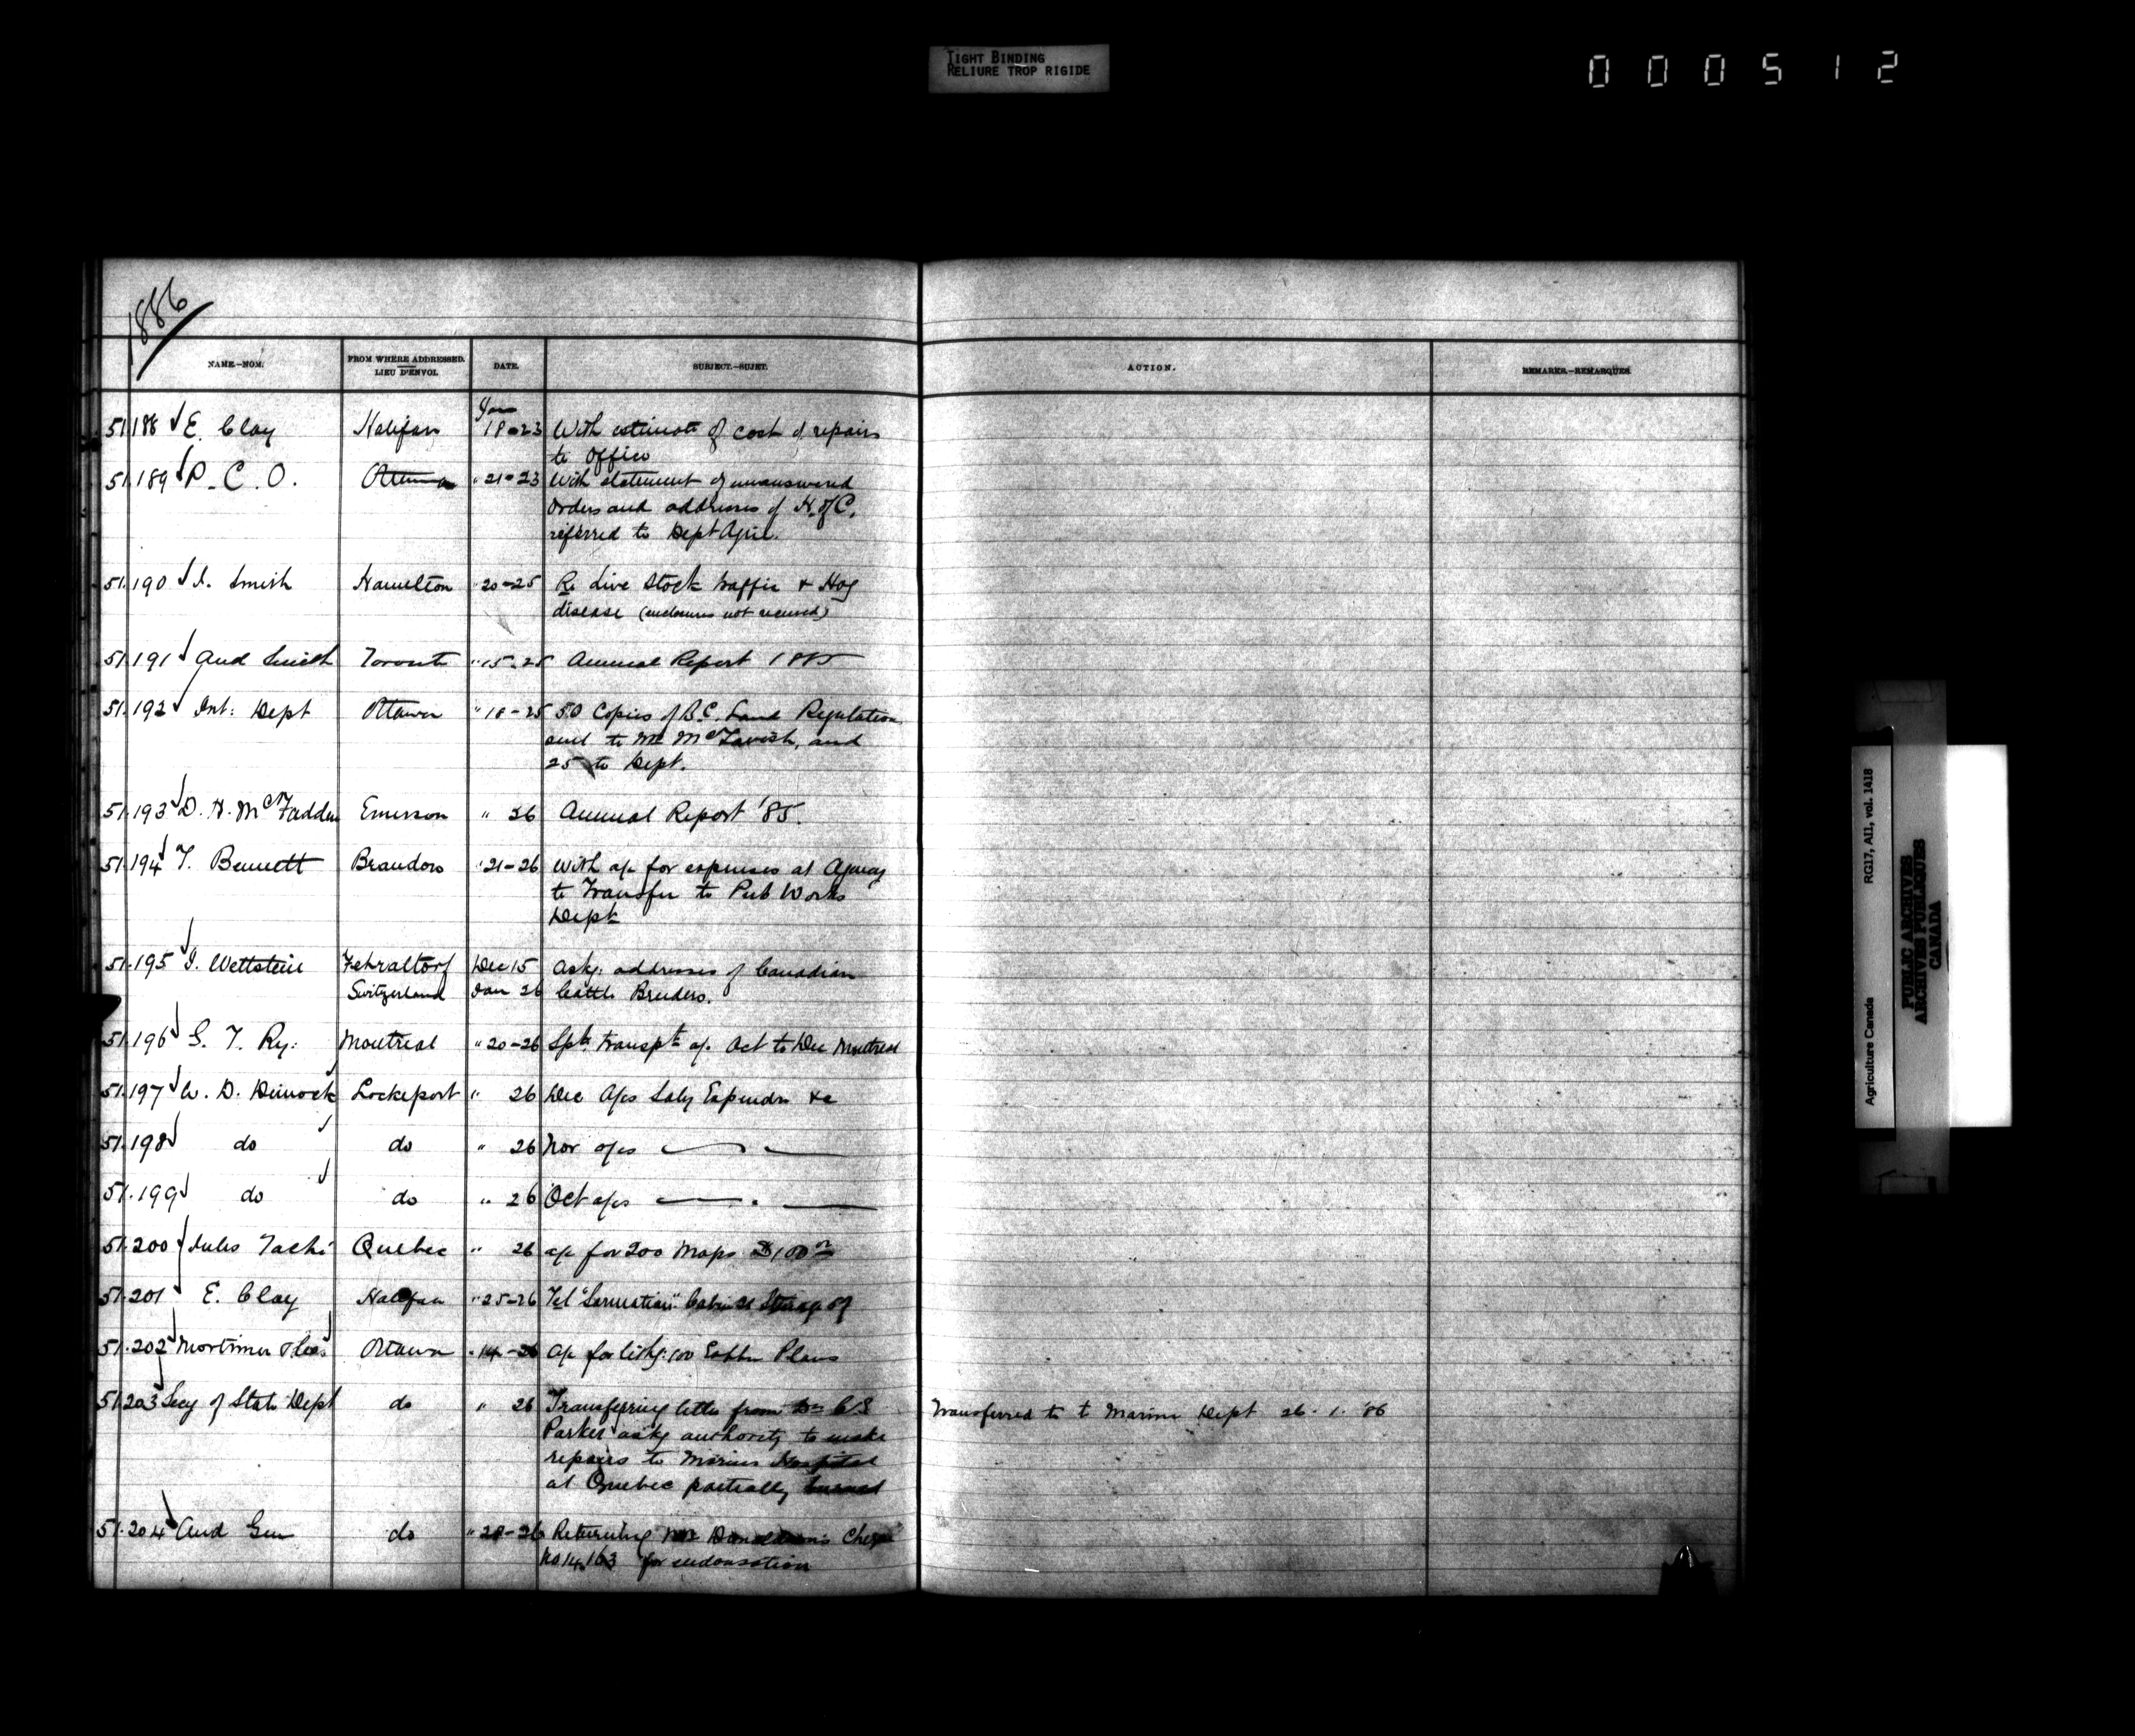 TIGHT BINDING
RELIURE TROP RIGIDE
000512
1886
NAME.—NOM.
FROM WHERE ADDRESSED.
LIEU D'ENVOI.
DATE.
SUBJECT.—SUJET.
ACTION.
REMARKS.—REMARQUES.
Jan
51.188 E. Clay Halifax 18-23 With estimate of cost of repairs
to Office
51.189 P.C.O. Ottawa " 21-23 With statement of unanswered
Orders and addresses of H. of C.
referred to Dept Agric.
51.190 J. Smith Hamilton " 20-25 Re Live Stock traffic & Hog
disease (enclosures not received)
51.191 And Smith Toronto " 15-25 Annual Report 1885
51.192 Int: Dept Ottawa " 18-25 50 Copies of B.C. Land Regulations
sent to Mr McTavish, and
25 to Dept.
51.193 D. H. McFadden Emerson " 26 Annual Report '85.
51.194 T. Bennett Brandon " 21-26 With a/c for expenses at Agency
to Transfer to Pub Works
Dept
51.195 J. Wettstein Fehraltorf Dec 15 Askg: addresses of Canadian
Switzerland Jan 26 Cattle Breeders.
51.196 G. T. Ry: Montreal " 20-26 Spl: transpt a/c Oct to Dec Montreal
51.197 W. D. Dimock Lockeport " 26 Dec A/cs Saly Expendre &c
51.198 do do " 26 Nov a/cs
51.199 do do " 26 Oct a/cs
51.200 Jules Taché Quebec " 26 a/c for 200 Maps $100
51.201 E. Clay Halifax " 25-26 Tel "Sarmatian" Cabin 21 Steerage 57
51.202 Mortimer & Co: Ottawa " 14-26 a/c for lithg: 100 Plans
51.203 Secy of State Dept do " 26 Transferring letter from Dr
Parker askg authority to make
repairs to Marine Hospital
at Quebec partially burned
Transferred to t Marine Dept 26.1.'86
51.204 Aud Gen do " -26 Returning Mr Donaldson's Cheque
No 14,163 for endorsation
Agriculture Canada RG17, AII, vol. 1418
PUBLIC ARCHIVES
ARCHIVES PUBLIQUES
CANADA